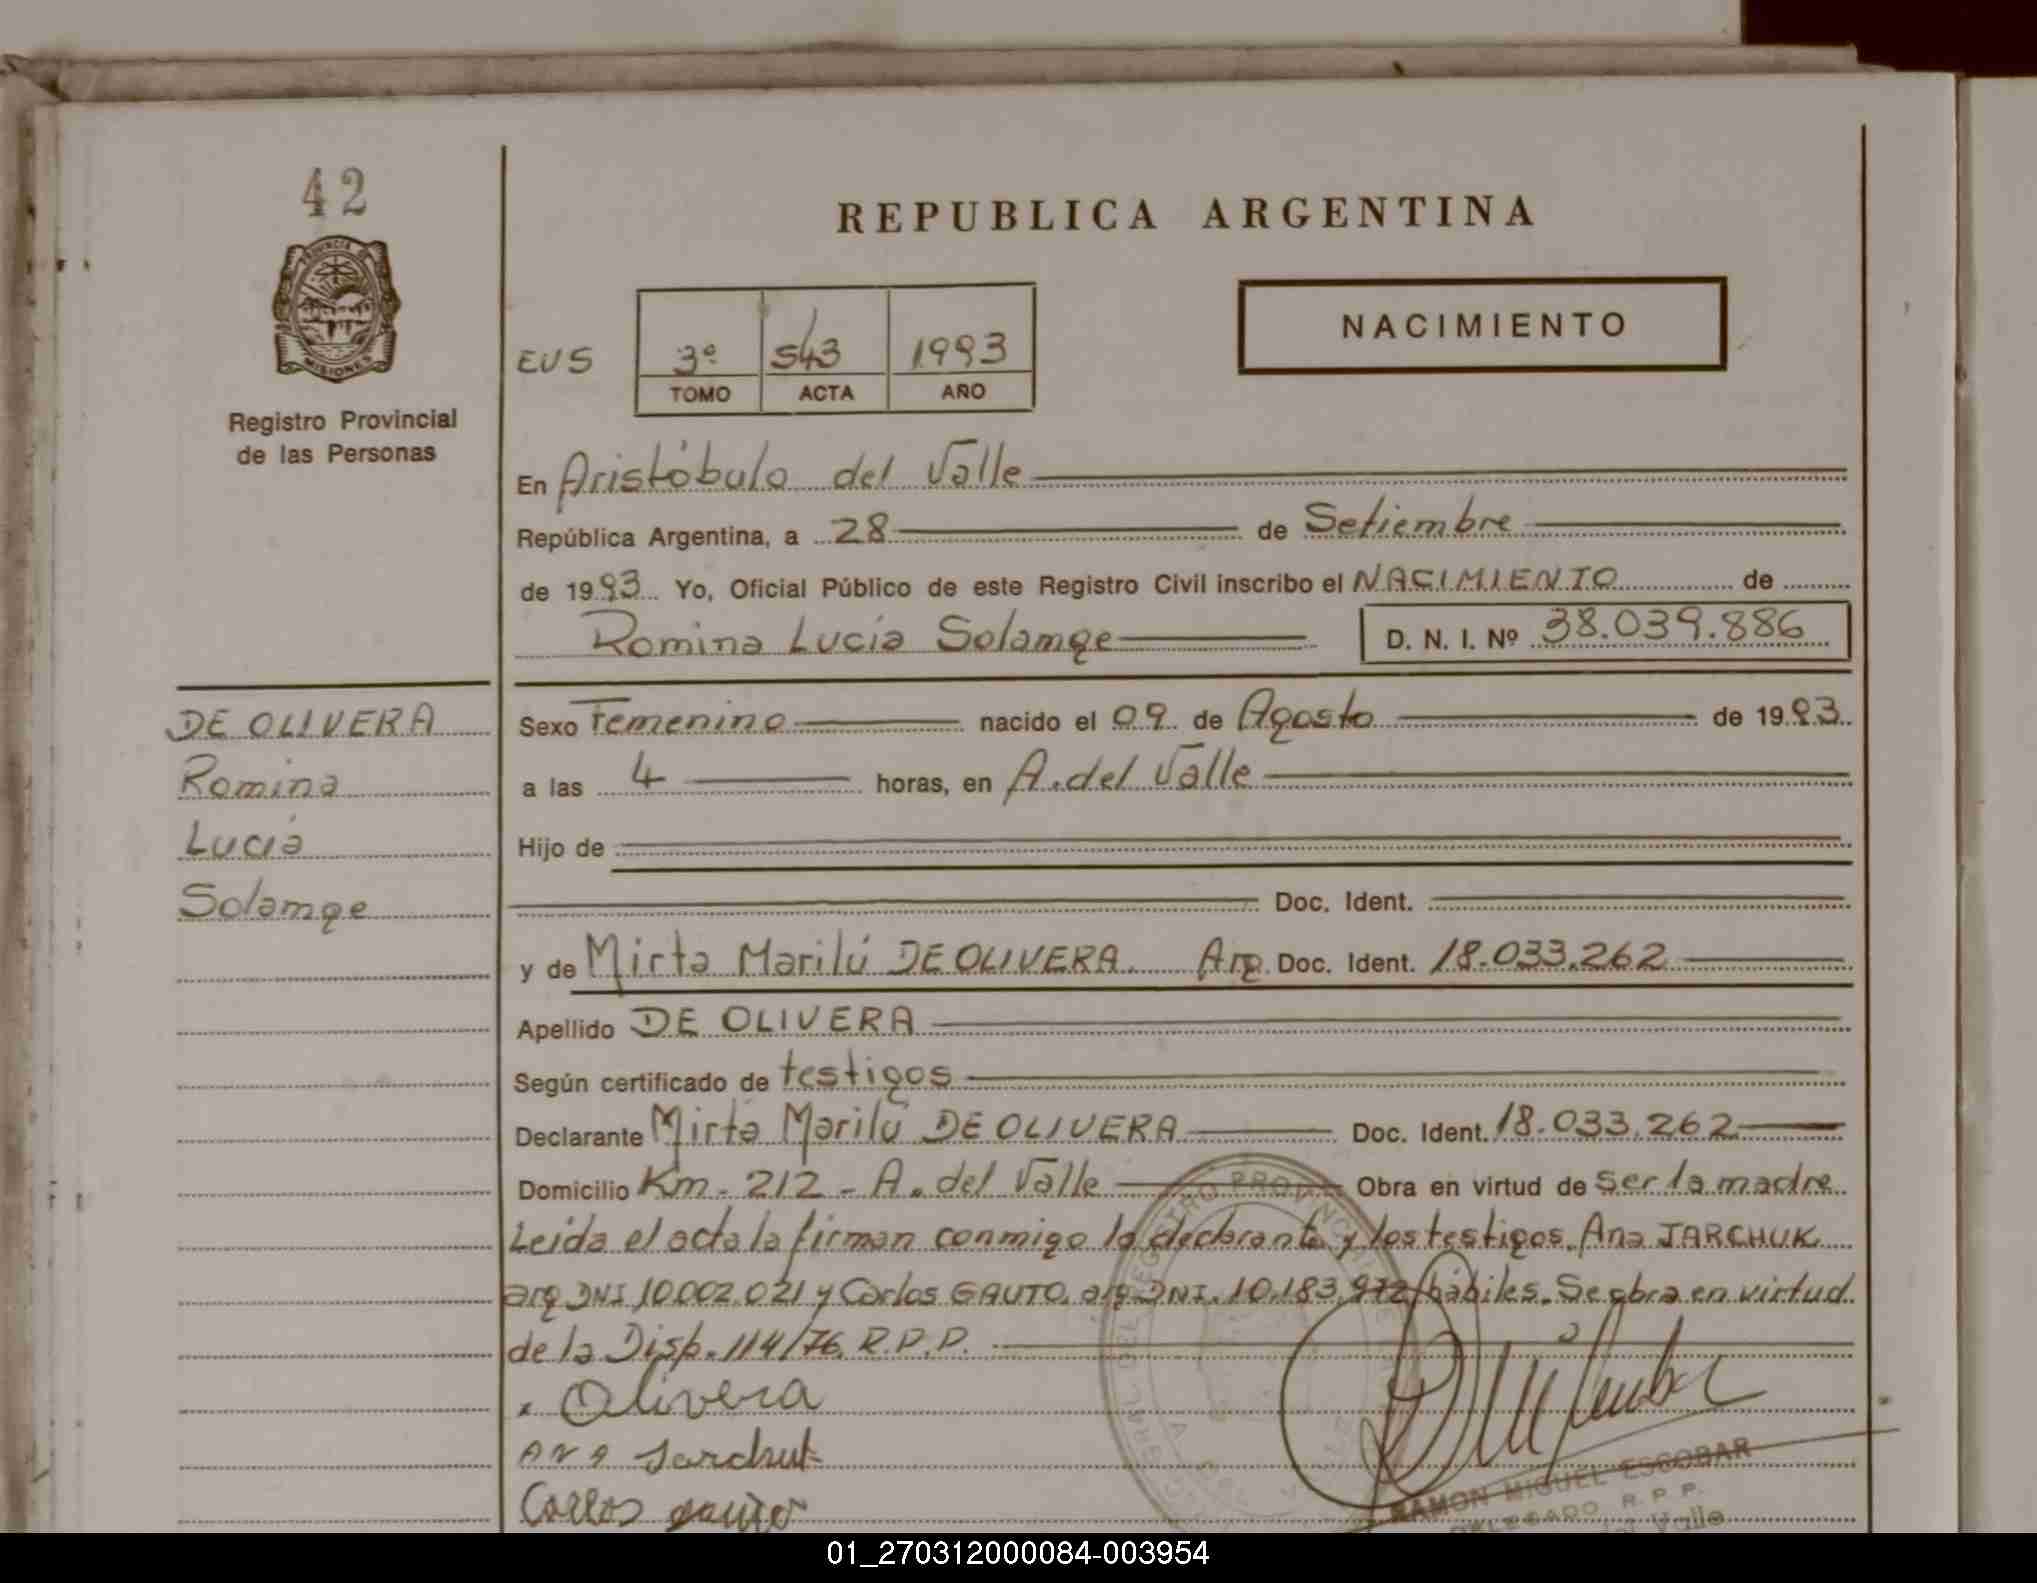 42
PROVINCIA DE
MISIONES
Registro Provincial
de las Personas
REPUBLICA ARGENTINA
NACIMIENTO
EUS 3º 543 1993
TOMO ACTA AÑO
En Aristóbulo del Valle
República Argentina, a 28 de Setiembre
de 1993 Yo, Oficial Público de este Registro Civil inscribo el NACIMIENTO de
Romina Lucía Solamge D. N. I. Nº 38.039.886
DE OLIVERA
Romina
Lucía
Solamge
Sexo Femenino nacido el 09 de Agosto de 1993
a las 4 horas, en A. del Valle
Hijo de
Doc. Ident.
y de Mirta Marilú DE OLIVERA. Arg. Doc. Ident. 18.033.262
Apellido DE OLIVERA
Según certificado de testigos
Declarante Mirta Marilú DE OLIVERA Doc. Ident. 18.033.262
Domicilio Km - 212 - A. del Valle Obra en virtud de ser la madre
Leída el acta la firman conmigo la declarante y los testigos. Ana JARCHUK
arg DNI 10.002.021 y Carlos GAUTO, arg DNI. 10.183.972/hábiles. Se obra en virtud
de la Disp. 114/76. R.P.P.
x Olivera
ANA Jarchuk
Carlos gauto
RAMON MIGUEL ESCOBAR
DELEGADO R. P. P.
del Valle
01_270312000084-003954